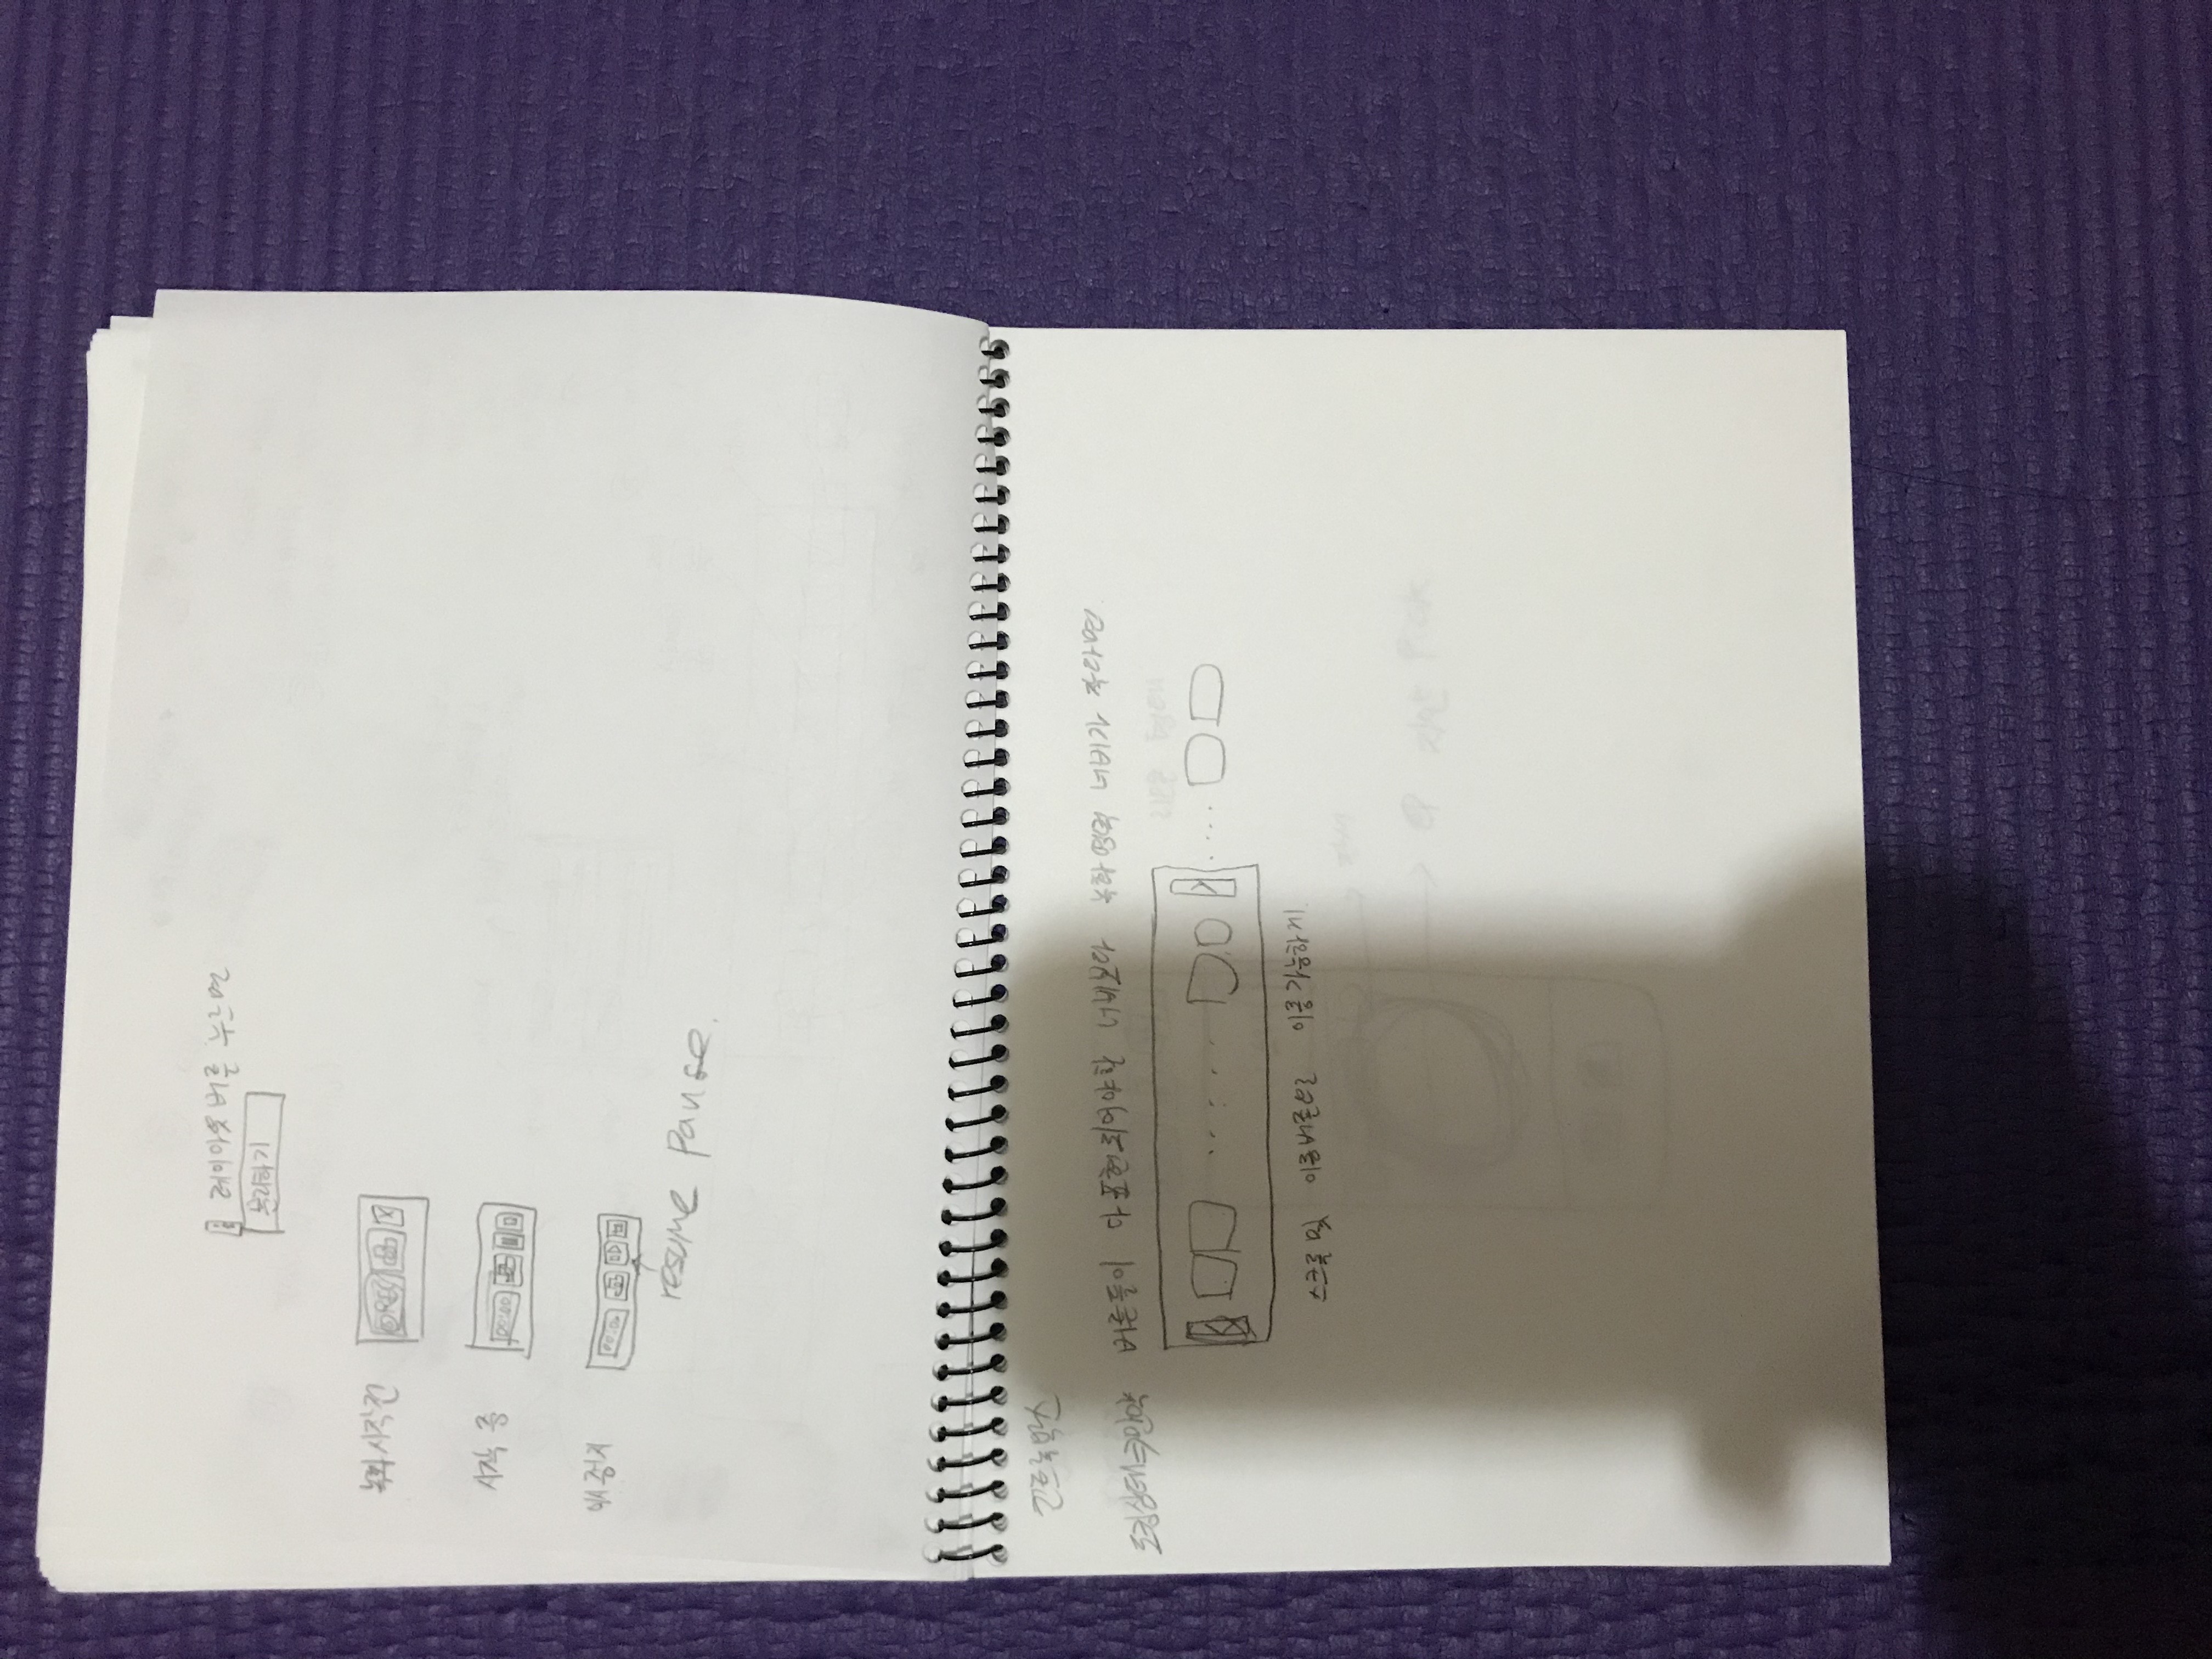 레이아웃 버튼 누르면
분리하기
녹화 시작전
REC
시작 중
00:00
일시정지
00:00
resume pause.
컨트롤박스
도킹상태 만약 버튼들이 다 표현되어야할 너비보다 녹화 영역 너비가 작다면
스크롤 및 이동버튼으로 이동 가능하게